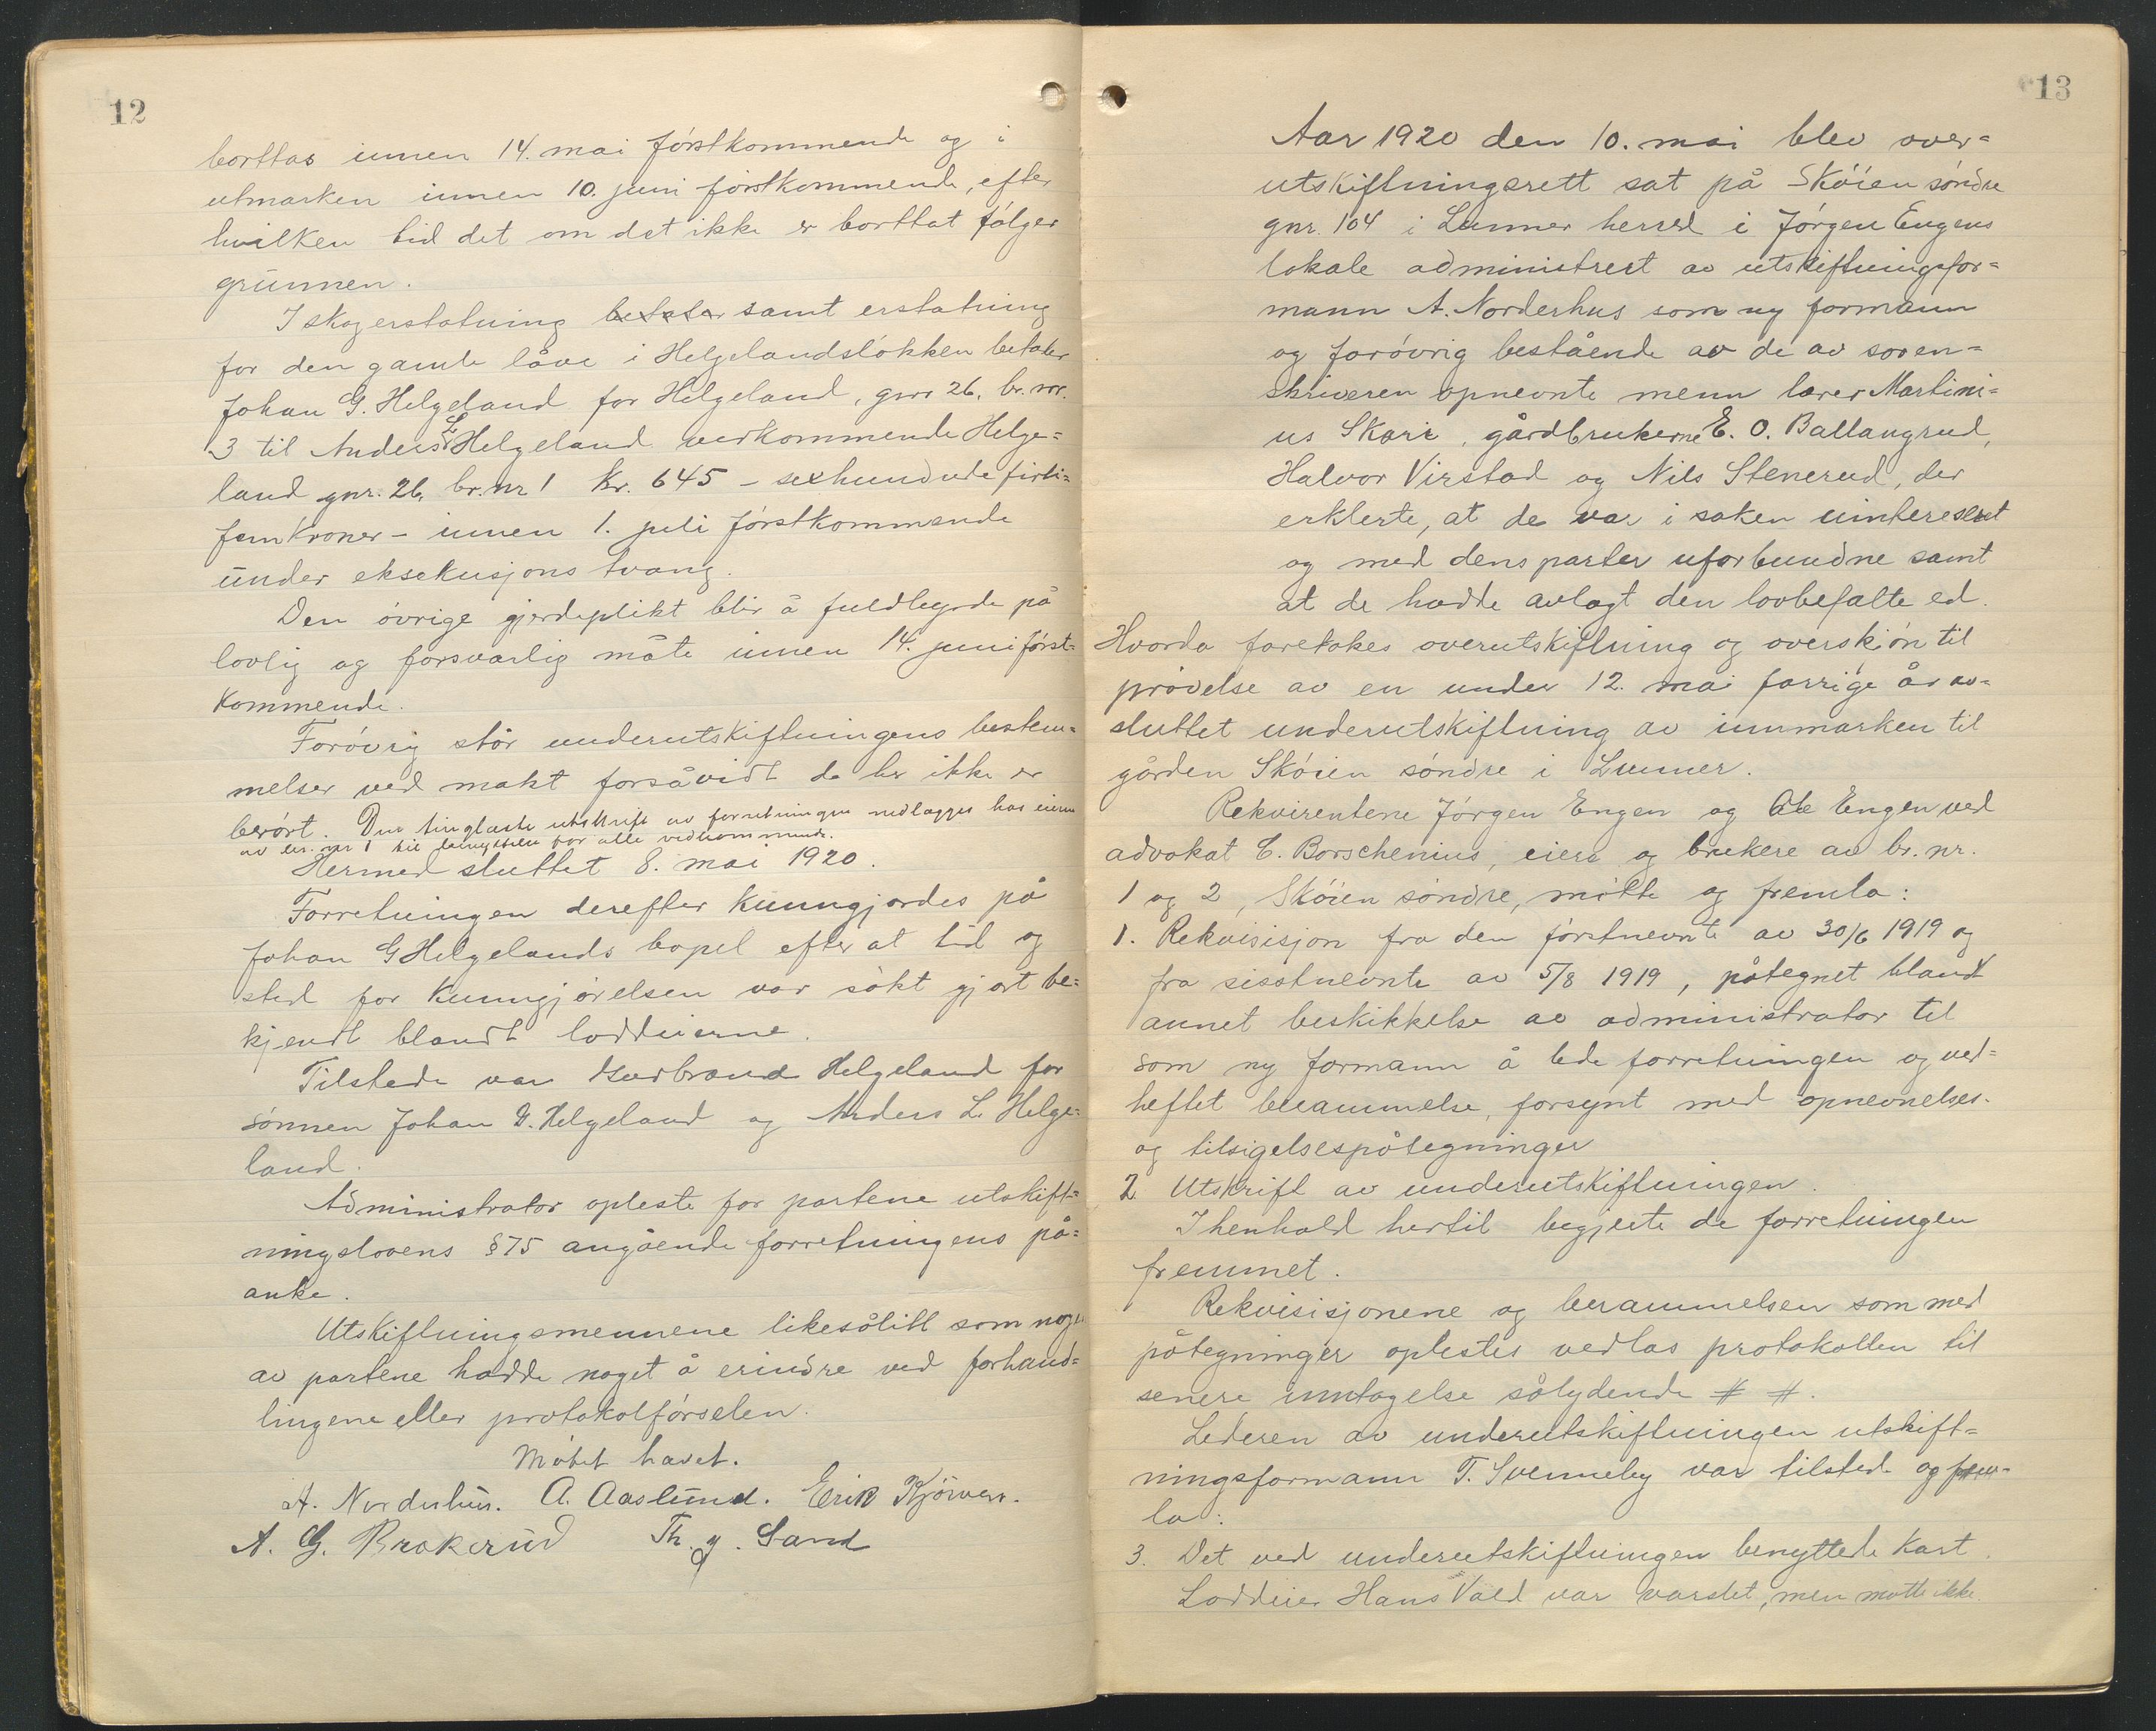 12
borttas innen 14. mai førstkommende og i
utmarken innen 10. juni førstkommende, efter
hvilken tid det om det ikke er borttat følger
grunnen.
I skogerstatning betaler samt erstatning
for den gamle låve i Helgelandsløkken betaler
Johan G. Helgeland for Helgeland, gnr 26, br. nr.
3 til Anders L Helgeland vedkommende Helge=
land gnr. 26, br. nr 1 kr. 645 - sexhundrede firti=
femkroner - innen 1. juli førstkommende
under eksekusjons tvang.
Den øvrige gjerdeplikt blir å fuldbyrde på
lovlig og forsvarlig måte innen 14. juni først=
kommende.
Forøvrig står underutskiftningens bestem=
melser ved makt forsåvidt de her ikke er
berørt. Den tinglæste utskrift av forretningen nedlægges hos eieren
av br. nr 1 til benyttelse for alle vedkommende.
Hermed sluttet 8. mai 1920.
Forretningen derefter kunngjordes på
Johan G Helgelands bopel efter at tid og
sted for kunngjørelsen var søkt gjort be=
kjendt blandt loddeierne.
Tilstede var Gudbrand Helgeland for
sønnen Johan G. Helgeland og Anders L. Helge=
land.
Administrator opleste for partene utskift=
ningslovens § 75 angående forretningens på=
anke.
Utskiftningsmennene likesålitt som nogen
av partene hadde noget å erindre ved forhand=
lingene eller protokolførselen.
Møtet hævet.
A. Norderhus. A. Aaslund. Erik Kjørven.
A. G. Brakerud Th. J. Sand
13
Aar 1920 den 10. mai blev over=
utskiftningsrett sat på Skøien søndre
gnr. 104 i Lunner herred i Jørgen Engens
lokale administrert av utskiftningsfor=
mann A. Norderhus som ny formann
og forøvrig bestående av de av soren=
skriveren opnevnte menn lærer Martini=
us Skari, gårdbrukerne E. O. Ballangrud,
Halvor Virstad og Nils Stenerud, der
erklerte, at de var i saken uinteresert
og med dens parter uforbundne samt
at de hadde avlagt den lovbefalte ed.
Hvorda foretakes overutskiftning og overskjøn til
prøvelse av en under 12. mai forrige år av=
sluttet underutskiftning av innmarken til
gården Skøien søndre i Lunner.
Rekvirentene Jørgen Engen og Ole Engen ved
advokat C. Borschenius, eiere og brukere av br. nr.
1 og 2, Skøien søndre, møtte og fremla:
1. Rekvisisjon fra den førstnevnte av 30/6 1919 og
fra sisstnevnte av 5/8 1919, påtegnet blandt
annet beskikkelse av administrator til
som ny formann å lede forretningen og ved=
heftet berammelse, forsynt med opnevnelses-
og tilsigelsespåtegninger
2 Utskrift av underutskiftningen.
I henhold hertil begjerte de forretningen
fremmet.
Rekvisisjonene og berammelsen som med
påtegninger oplestes vedlas protokollen til
senere inntagelse sålydende # #.
Lederen av underutskiftningen utskift=
ningsformann T. Svenneby var tilstede og frem=
la:
3. Det ved underutskiftningen benyttede kart.
Loddeier Hans Vold var varslet, men møtte ikke.